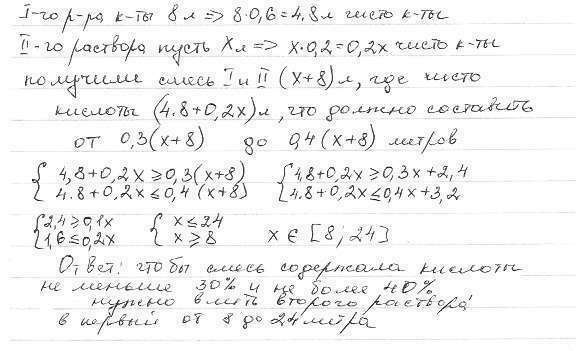 I-го р-ра к-ты 8 л => 8·0,6=4.8л чисто к-ты
II-го раствора пусть Xл => x·0,2=0,2x чисто к-ты
получили смесь I и II (x+8)л, где чисто
кислоты (4.8+0,2x)л, что должно составить
от 0,3(x+8) до 0,4(x+8) литров
{ 4,8+0,2x ≥ 0,3(x+8) { 4,8+0,2x ≥ 0,3x+2,4
4.8+0,2x ≤ 0,4(x+8) 4.8+0,2x ≤ 0,4x+3,2
{ 2,4 ≥ 0,1x { x ≤ 24
1,6 ≤ 0,2x x ≥ 8 x ∈ [8; 24]
Ответ: чтобы смесь содержала кислоты
не меньше 30% и не более 40%
нужно влить второго раствора
в первый от 8 до 24 литра